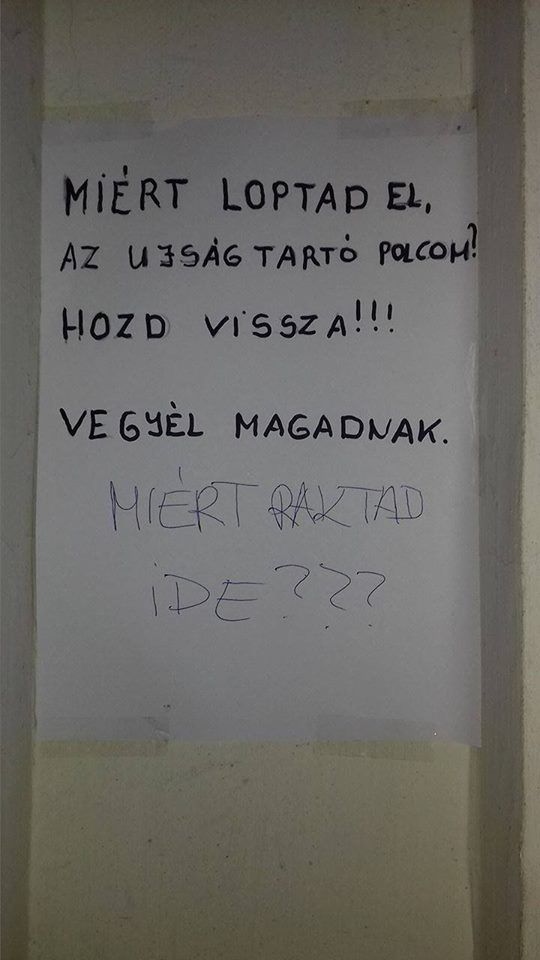 MIÉRT LOPTAD EL,
AZ UJSÁGTARTÓ POLCOM?
HOZD VISSZA!!!
VEGYÈL MAGADNAK.
MIÉRT RAKTAD
IDE???